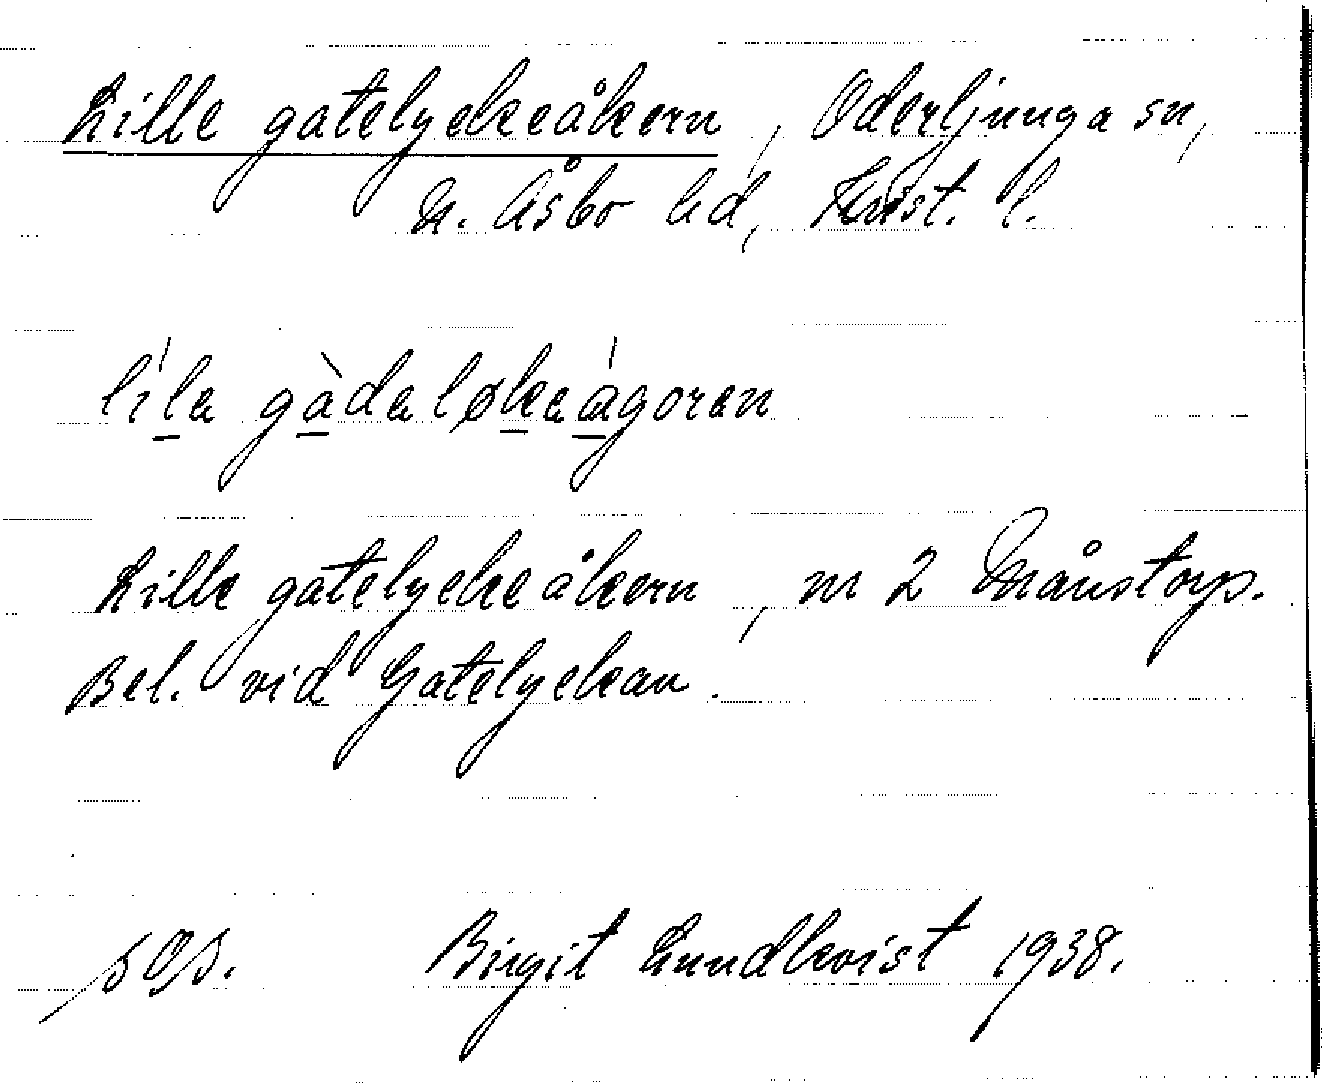 Lille gatelyckeåkern, Oderljunga sn,
N. Åsbo hd, Krist. l.
líla gàdaløkaágoren
Lille gatelyckeåkern, nr 2 Månstorp.
Bel. vid Gatelyckan.
Birgit Lundkvist 1938.